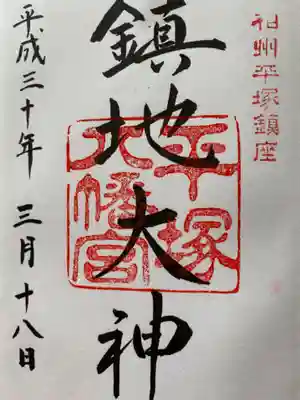 相州平塚鎮座
鎮地大神
平塚
八幡宮
平成三十年 三月十八日